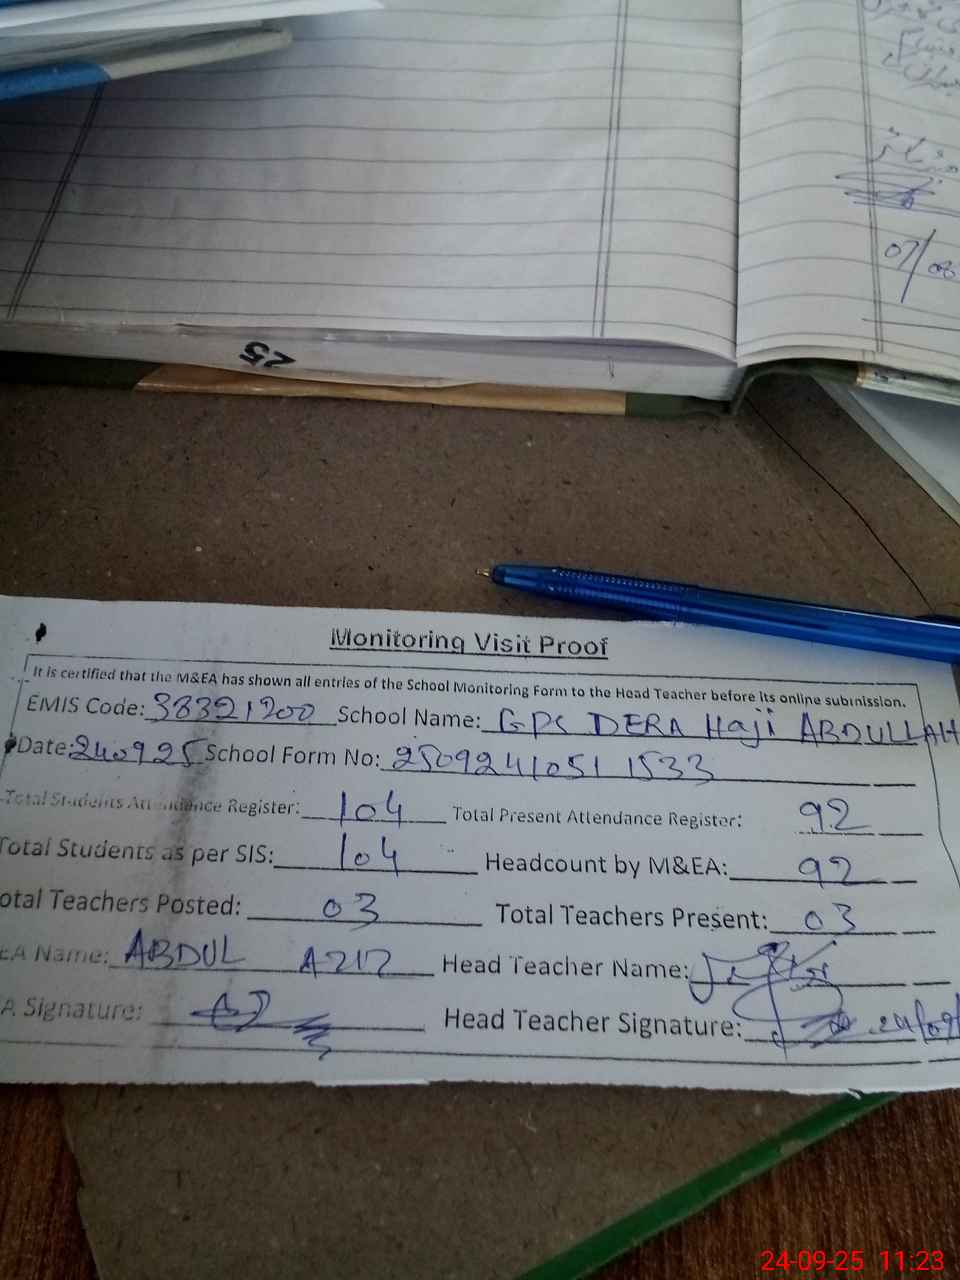 07/08
25
Monitoring Visit Proof
It is certified that the M&EA has shown all entries of the School Monitoring Form to the Head Teacher before its online submission.
EMIS Code: 38321200 School Name: GPS DERA Haji ABDULLAH
Date: 240925 School Form No: 2509241051 1533
Total Students Attendance Register: 104 Total Present Attendance Register: 92
Total Students as per SIS: 104 Headcount by M&EA: 92
otal Teachers Posted: 03 Total Teachers Present: 03
EA Name: ABDUL AZIZ Head Teacher Name:
A Signature: Head Teacher Signature: 24/09/
24-09-25 11:23